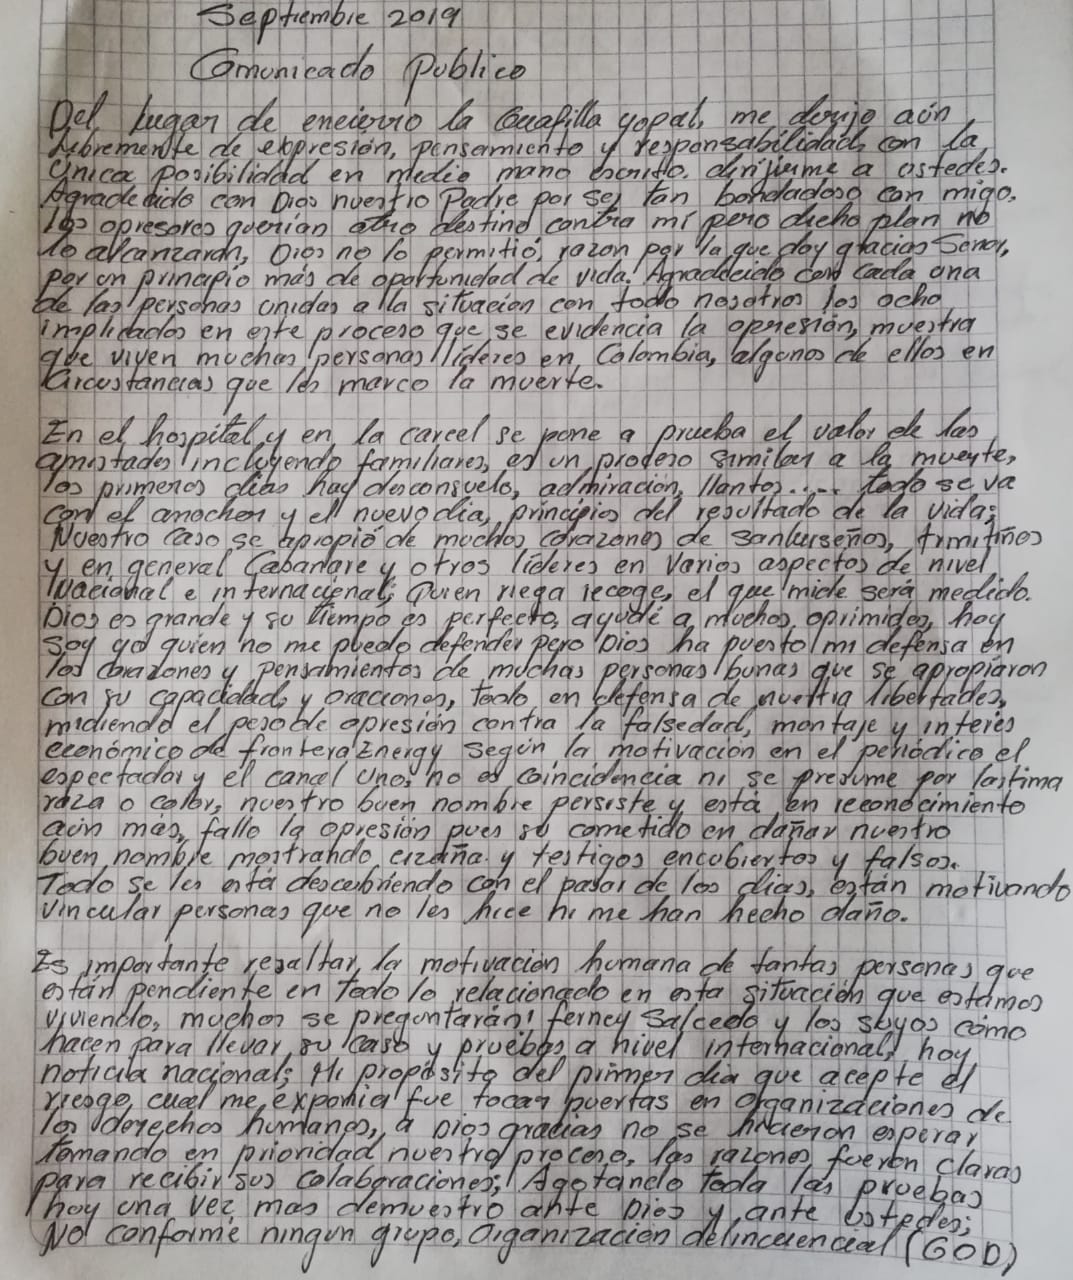 Septiembre 2019
Comunicado Publico
Del Lugar de encierro la Guafilla yopal, me dirijo aún
Libremente de expresión, pensamiento y responsabilidad, con la
Unica posibilidad en medio mano escrito, dirijirme a ustedes.
Agradecido con Dios nuestro Padre por ser tan bondadoso con migo,
los opresores querian otro destino contra mi pero dicho plan no
lo alcanzaran, Dios no lo permitió, razon por la que doy gracias Señor,
por un principio más de oportunidad de vida. Agradecido con cada una
de las personas unidas a la situación con todo nosotros los ocho
implicados en este proceso que se evidencia la opresión, muestra
que viven muchas personas lideres en Colombia, algunos de ellos en
circustancias que les marco la muerte.
En el hospital y en la carcel se pone a prueba el valor de las
amistades incluyendo familiares, es un proceso similar a la muerte,
los primeros dias hay desconsuelo, admiración, llantos..... todo se va
con el anochecer y el nuevo dia, principios del resultado de la vida;
Nuestro caso se apropió de muchos corazones de sanluiseños,
y en general Casanare y otros lideres en varios aspectos de nivel
Nacional e internacional; Quien riega recoge, el que mide será medido.
Dios es grande y su tiempo es perfecto, ayude a muchos oprimidos, hoy
soy yo quien no me puedo defender pero Dios ha puesto mi defensa en
los corazones y pensamientos de muchas personas bunas que se apropiaron
con su capacidad, y oraciones, todo en defensa de nuestra libertades,
midiendo el posible opresión contra la falsedad, montaje y interés
económico de frontera Energy según la motivación en el periódico el
espectador y el canal Uno, no es coincidencia ni se presume por lastima
raza o color, nuestro buen nombre persiste y está en reconocimiento
aún más, fallo la opresión pues su cometido en dañar nuestro
buen nombre mostrando cizaña y testigos encubiertos y falsos.
Todo se les esta descubriendo con el pasar de los dias, están motivando
vincular personas que no les hice ni me han hecho daño.
Es importante resaltar la motivación humana de tantas personas que
están pendiente en todo lo relacionado en esta situación que estamos
viviendo, muchos se preguntarán! ferney Salcedo y los suyos cómo
hacen para llevar su caso y pruebas a nivel internacional, hoy
noticia nacional; Mi propósito del primer dia que acepte el
riesgo, cual me exponia fue tocar puertas en organizaciones de
los derechos humanos, a Dios gracias no se hicieron esperar
tomando en prioridad nuestro proceso, las razones fueron claras
para recibir sus colaboraciones; Agotando toda las pruebas
hoy una vez mas demuestro ante Dios y ante ustedes;
No conforme ningun grupo, organización delincuencial (GOD)